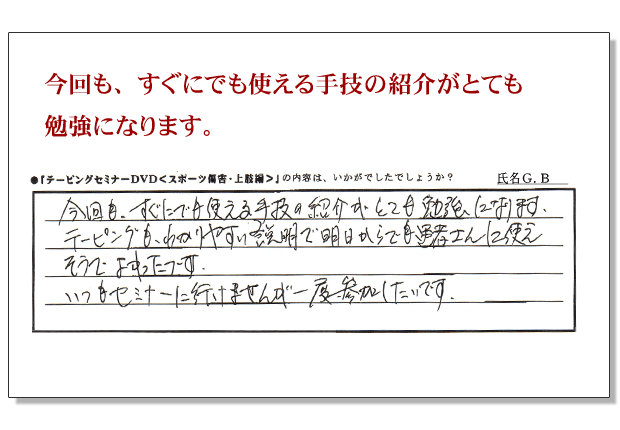 今回も、すぐにでも使える手技の紹介がとても
勉強になります。
●『テーピングセミナーDVD＜スポーツ傷害・上肢編＞』の内容は、いかがでしたでしょうか？ 氏名G. B
今回も、すぐにでも使える手技の紹介がとても勉強になります。
テーピングも、わかりやすい説明で明日からでも患者さんに使え
そうでよかったです.
いつもセミナーに行けませんが一度参加したいです.